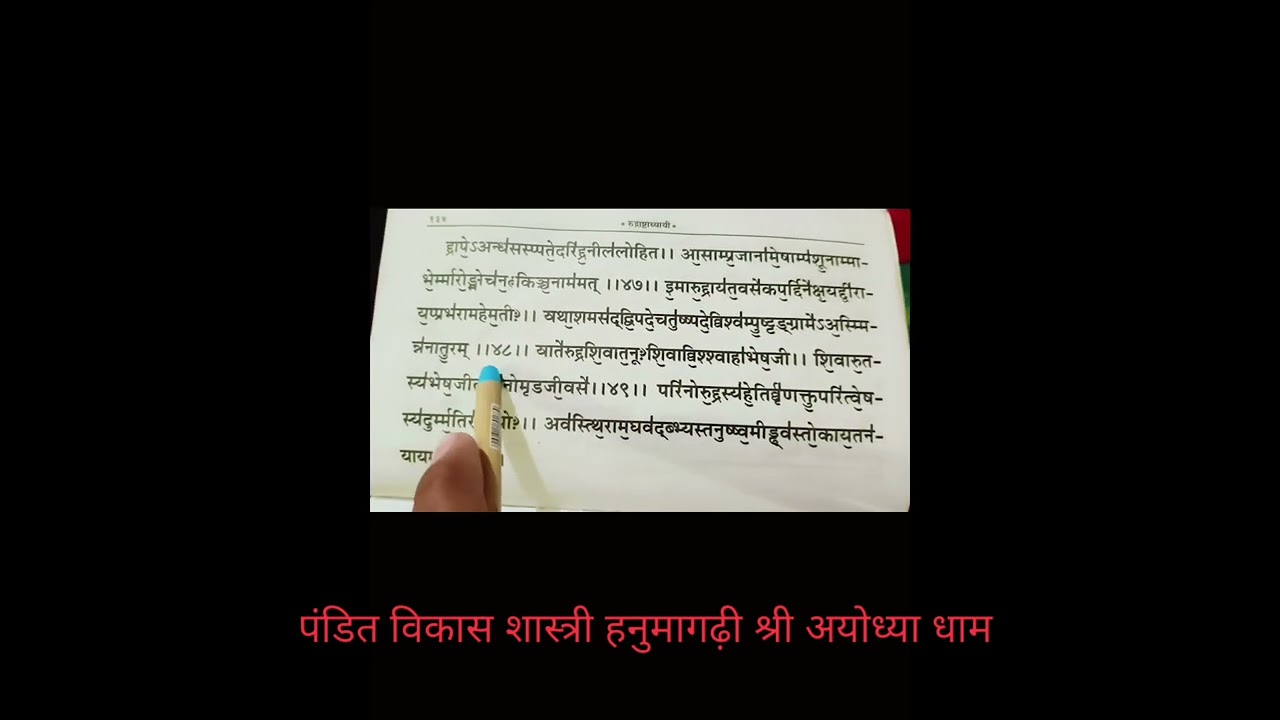 १३४
* रुद्राष्टाध्यायी *
द्रापे॒ऽअन्ध॑सस्प्पते॒दरि॑द्द्र॒नील॑लोहित।। आ॒साम्प्र॒जाना॑मे॒षाम्प॑शू॒नाम्मा-
भे॒र्म्मारो॒ङ्मोच॑न॒ᳲकिञ्च॒नाम॑मत् ।।४७।। इ॒मारु॒द्द्राय॑त॒वसे॑कप॒र्द्दिने॑क्ष॒यद्द्वी॑रा-
य॒प्प्रभ॑रामहेम॒तीः।। यथा॒शमस॑द्द्वि॒पदे॒चतु॑ष्प्पदे॒व्विश्व॑म्पु॒ष्ट्टङ्ग्रामे॑ऽअ॒स्म्मि-
न्न॑नातु॒रम् ।।४८।। याते॑रुद्द्रशि॒वात॒नूःशि॒वाव्वि॒श्श्वाहा॑भेष॒जी।। शि॒वारु॒त-
स्य॑भेष॒जी नोमृडजी॒वसे॑।।४९।। परि॑नोरु॒द्द्रस्य॑हे॒तिर्व्वृ॑णक्क्तु॒परि॑त्वे॒ष-
स्य॑दुर्म्म॒ति योः।। अव॑स्त्थि॒राम॒घव॑द्द्भ्यस्तनुष्ष्व॒मीड्ढ्व॑स्तो॒काय॒तन॑-
पंडित विकास शास्त्री हनुमागढ़ी श्री अयोध्या धाम